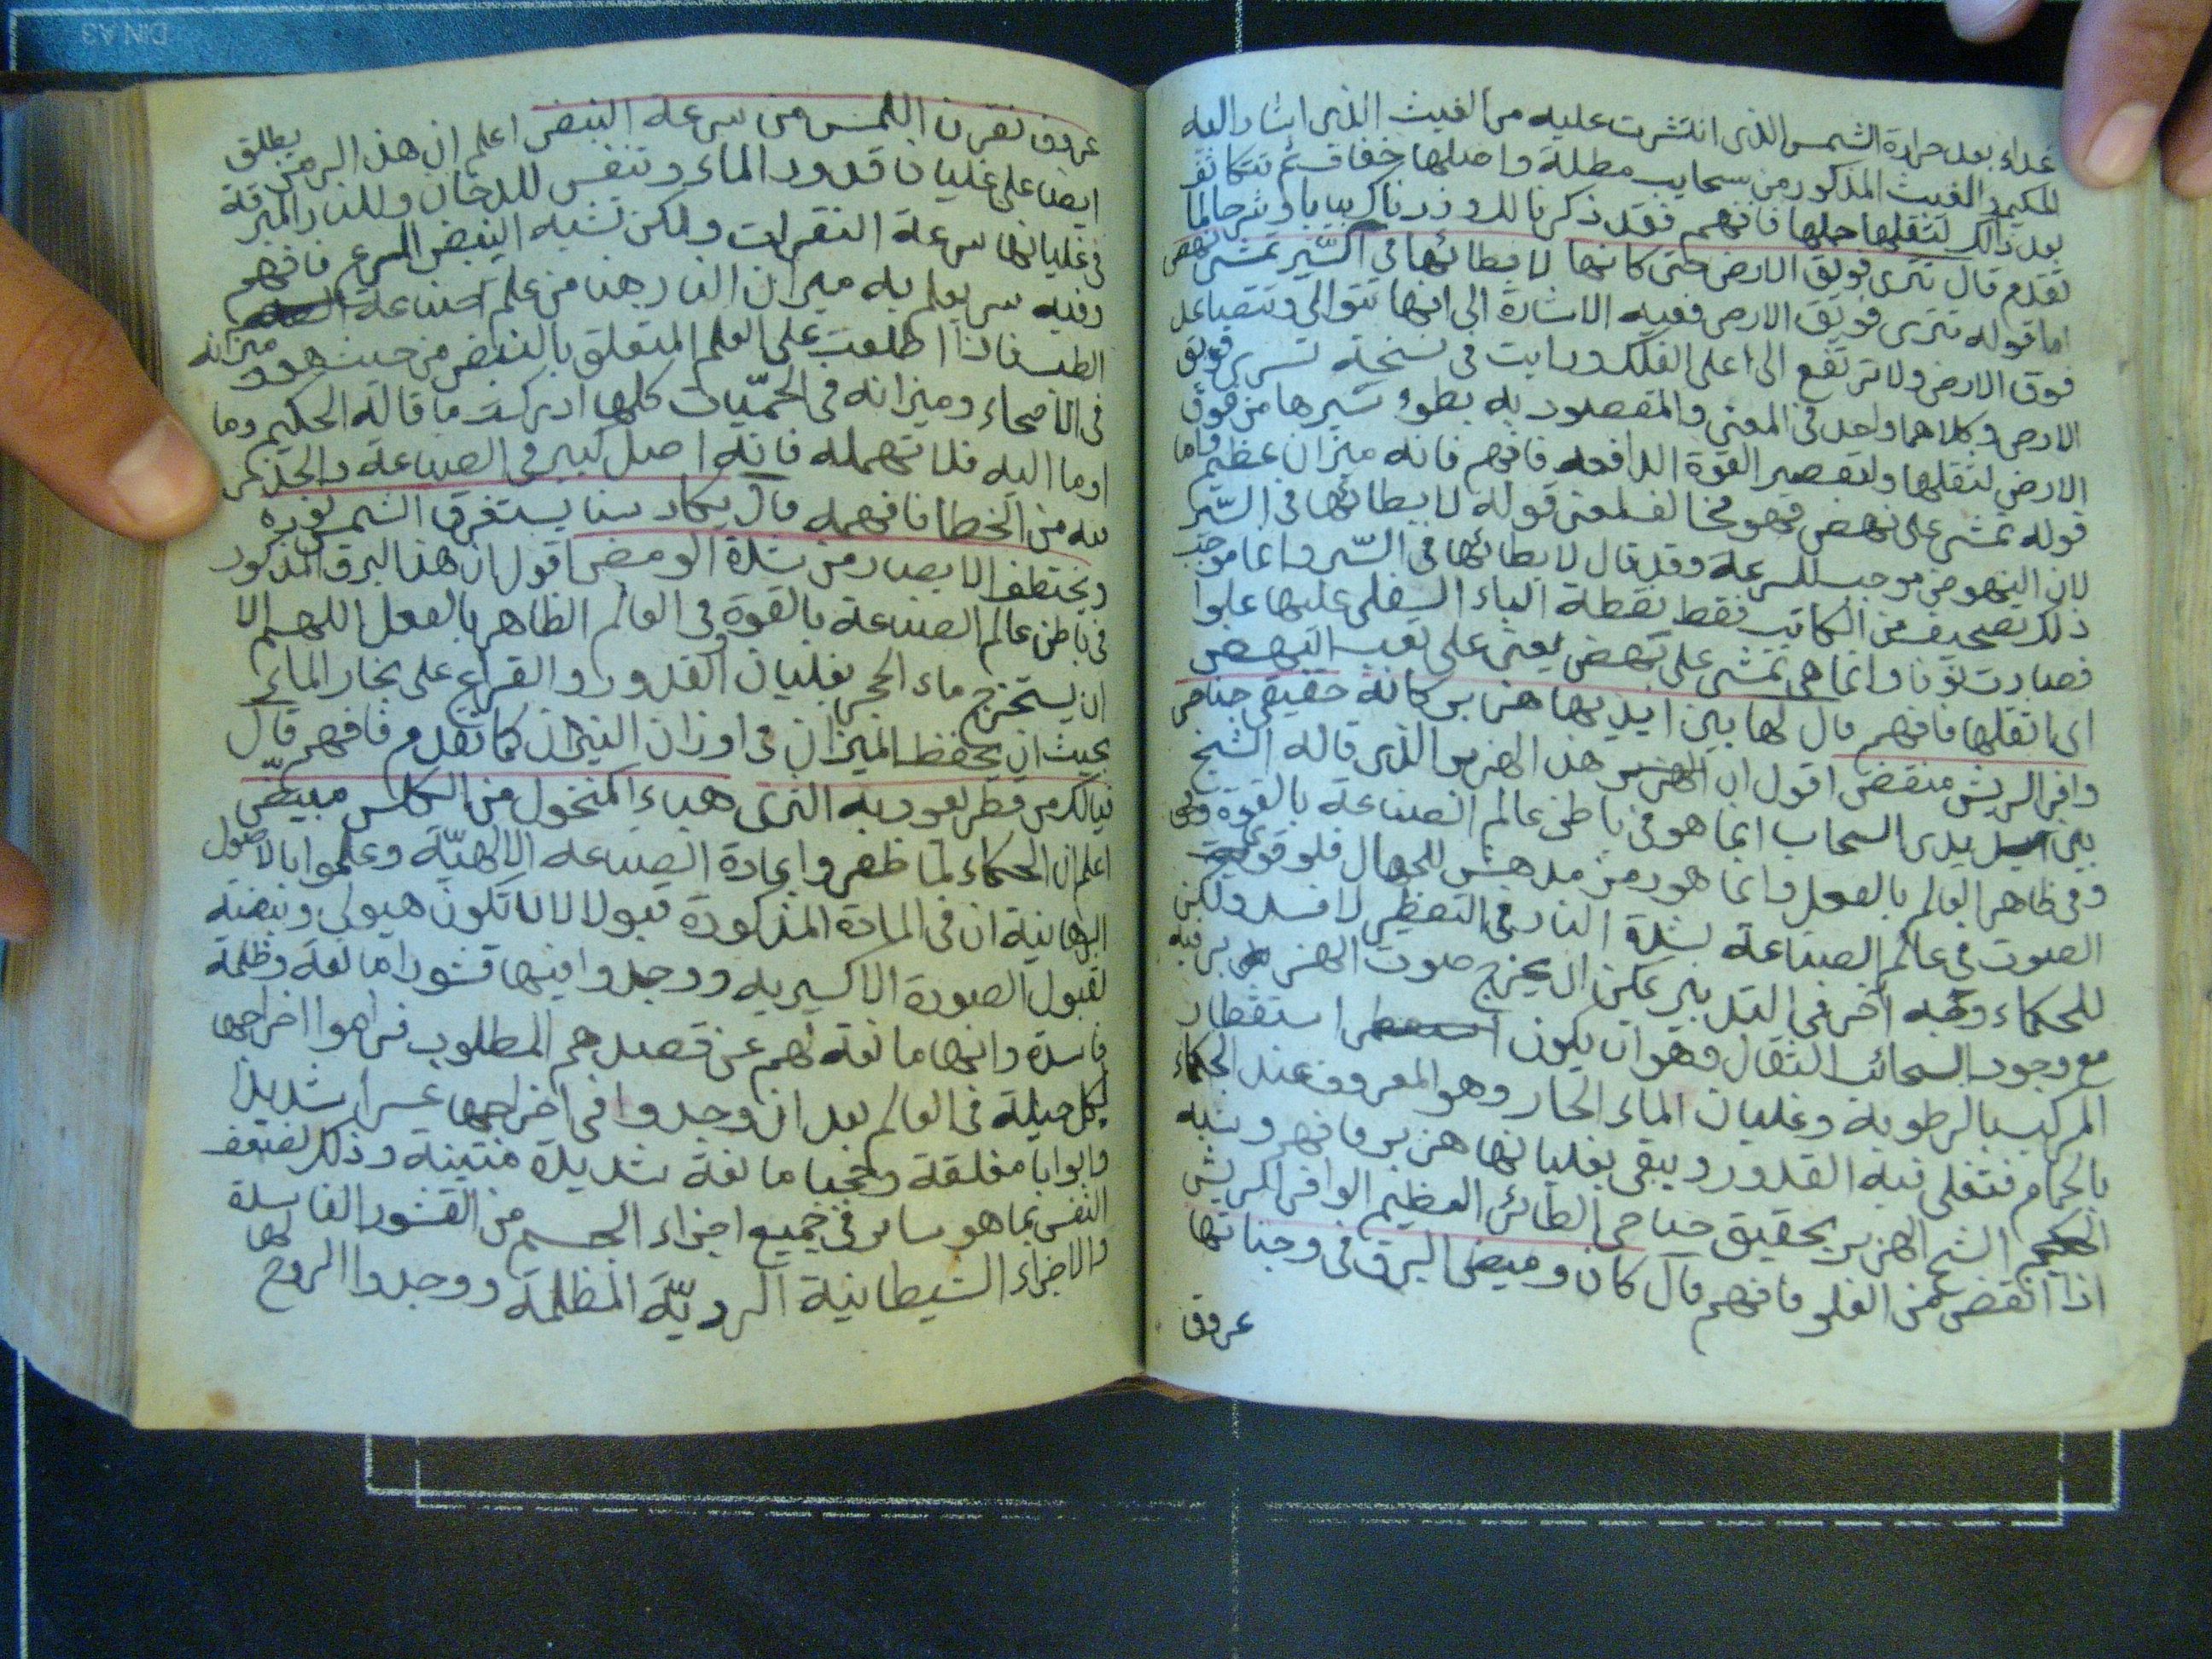 غداء بعد حرارة الشمس الذى انتشرت عليه من الغيث الذى اشار اليه
الحكيم والغيث المذكور من سحايب مطلة واصلها خفاف ثم تتكاثف
بعد ذالك لثقلها حملها فافهم فقد ذكرنا لك وزدناك بيانا وشرحا لما
تقدم قال تترى فويق الارض حتى كانها لابطائها فى السير تمشى نهض
اما قوله تترى فويق الارض ففيه الاشارة الى انها تتوالى وتتصاعد
فوق الارض ولا ترتفع الى اعلى الفلك ورايت فى نسخة تسرى فويق
الارض وكلاهما واحد فى المعنى والمقصود به بطوء سيرها من فوق
الارض لثقلها ولتقصير القوة الدافعه فافهم فانه ميزان عظيم واما
قوله تمشى على نهض فهو مخالف لمعنى قوله لابطائها فى السير
لان النهوض موجب للسرعة وقد قال لابطائها فى السير وانما موجب
ذلك تصحيف من الكاتب فقط نقطة الباء السفلى عليها علوا
فصارت نونا وانما هى تمشى على بهض يعنى على تعب البهض
اى اثقلها فافهم قال لها بين ايديها هزبر كانه حقيقى جناحى
وافى الريش منقض اقول ان الهزبر هذا الهزبر الذى قاله الشيخ
بين يدى السحاب انما هو فى باطن عالم الصناعة بالقوة
وفى ظاهر العالم بالفعل وانما هو رمز مدهش للجهال فلو قوى
الصوت فى عالم الصناعة لشدة النار فى التقطير لافسد ولكن
للحكماء وجه آخر فى التدبير يمكن ان يخرج صوت الهزبر فيه
مع وجود السحائب الثقال وهو ان يكون استقطار
المركب بالرطوبة وغليان الماء الحار وهو المعروف عند الحكماء
بالحمام فتغلى فيه القدور ويبقى بغليانها هزبر فافهم وشبه
الشيخ الهزبر بحقيق جناحى الطائر العظيم الوافى الريش
اذا انقض من العلو فافهم قال كان وميض البرق فى وجناتها
عروق
عروق نقرن اللمس من سرعة النبض اعلم ان هذا الرمز يطلق
ايضا على غليان قدور الماء وتنفس للدخان وللنار المبرقة
فى غليانها سرعة النقرات ولكن تشبه النبض المسرع فافهم
وفيه سر يعلم به ميزان النار هنا من علم صناعة
الطب فاذا اطلعت على العلم المتعلق بالنبض من حيث هو وميزانه
فى الاصحاء وميزانه فى الحميات كلها ادركت ما قاله الحكيم وما
اوما اليه فلا تهمله فانه اصل كبير فى الصناعة والحذر كل
به من الخطا فافهمه قال يكاد سنا يستغرق الشمس نوره
ويختطف الابصار من شدة الومض اقول ان هذا البرق المذكور
فى باطن عالم الصناعة بالقوة وفى العالم الظاهر بالفعل اللهم الا
ان يستخرج ماء الحجر بغليان القدور والقراع على بخار الماء
بحيث ان يحفظ الميزان فى اوزان النيران كما تقدم فافهم قال
فيالك من قطر يعود به الثرى هباء المنخول من الكلس مبيض
اعلم ان الحكماء لما ظفروا بمادة الصناعة الالهية وعلموا بالاصول
البرهانية ان فى المادة المذكورة قبولا لان تكون هيولى وبيضة
لقبول الصورة الاكسيريه ووجدوا فيها قشورا مانعة وظلمة
فاسدة وانها مانعة لهم عن قصدهم المطلوب فراموا اخراجها
بكل حيلة فى العالم بعد ان وجدوا فى اخراجها عسرا شديدا
وابوابا مغلقة وحجبا مانعة شديدة متينة وذلك لضعف
النفس بما هو سار فى جميع اجزاء الجسم من القشور الفاسدة
والاجزاء الشيطانية الرديّة المظلمة ووجدوا الروح لها